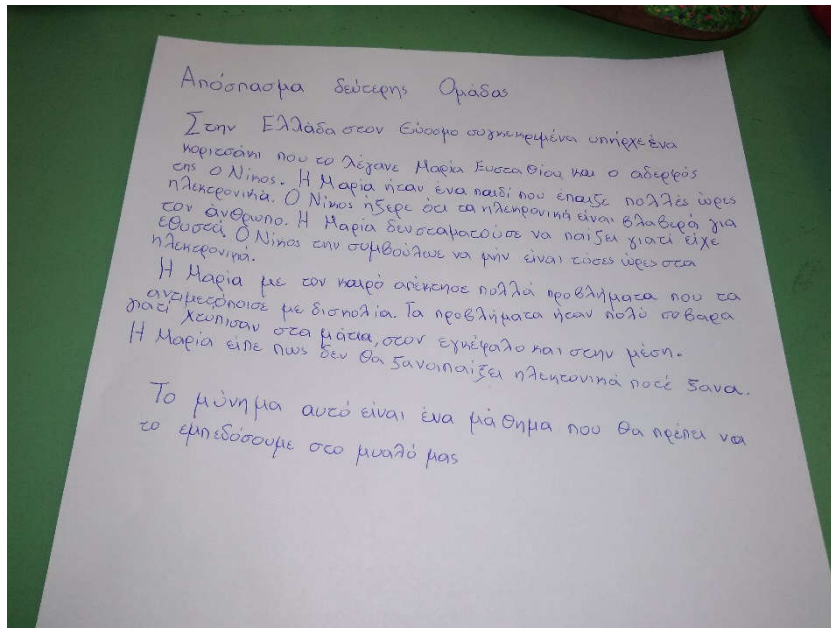 Απόσπασμα δεύτερης Ομάδας
Στην Ελλάδα στον Εύοσμο συγκεκριμένα υπήρχε ένα
κοριτσάκι που το λέγανε Μαρία Ευσταθίου και ο αδερφός
της ο Νίκος. Η Μαρία ήταν ένα παιδί που έπαιζε πολλές ώρες
ηλεκτρονικά. Ο Νίκος ήξερε ότι τα ηλεκρονικά είναι βλαβερά για
τον άνθρωπο. Η Μαρία δεν σταματούσε να παίζει γιατί είχε
εθυστεί. Ο Νίκος την συμβούλωε να μην είναι τόσες ώρες στα
ηλεκτρονικά.
Η Μαρία με τον καιρό απέκτησε πολλά προβλήματα που τα
αντιμετόποισε με δισκολία. Τα προβλήματα ήταν πολύ σοβαρα
γιατί χτύπισαν στα μάτια, στον εγκέφαλο και στην μέση.
Η Μαρία είπε πως δεν θα ξαναπαίξει ηλεκτονικά ποτέ ξανα.
Το μύνημα αυτό είναι ένα μάθημα που θα πρέπει να
το εμπεδόσουμε στο μυαλό μας